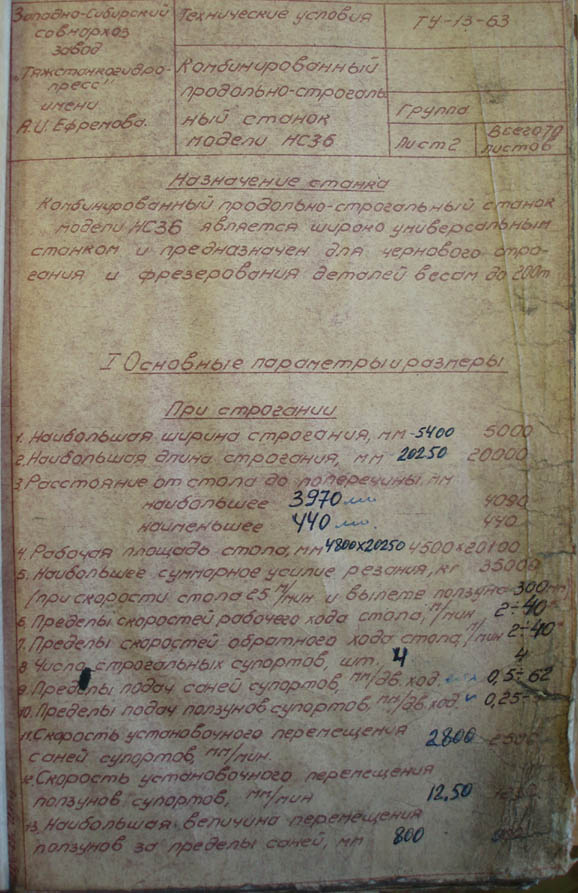 Западно-Сибирский
совнархоз
завод
"Тяжстанкогидро-
пресс"
имени
А.И. Ефремова.
Технические условия
Комбинированный
продольно-строгаль
ный станок
модели НС36
ТУ-13-63
Группа
Лист 2
Всего 70
листов
Назначение станка
Комбинированный продольно-строгальный станок
модели НС36 является широко универсальным
станком и предназначен для чернового стро-
гания и фрезерования деталей весам до 200т
I Основные параметры и размеры
При строгании
1. Наибольшая ширина строгания, мм - 5400 5000
2. Наибольшая длина строгания, мм 20250 20000
3. Расстояние от стола до поперечины, мм
наибольшее 3970 мм 4090
наименьшее 440 мм. 440
4. Рабочая площадь стола, мм 4800х20250 4500х20100
5. Наибольшее суммарное усилие резания, кг 35000
/при скорости стола 25 м/мин и вылете ползуна 300 мм/
6. Пределы скоростей рабочего хода стола, м/мин 2÷40
7. Пределы скоростей обратного хода стола, м/мин 2÷40
8. Число строгальных супортов, шт. 4 4
9. Пределы подач саней супортов, мм/дв. ход. 0,5÷62
10. Пределы подач ползунов супортов, мм/дв. ход. 0,25÷
11. Скорость установочного перемещения
саней супортов, мм/мин. 2800
12. Скорость установочного перемещения
ползунов супортов, мм/мин 12.50
13. Наибольшая величина перемещения
ползунов за пределы саней, мм 800